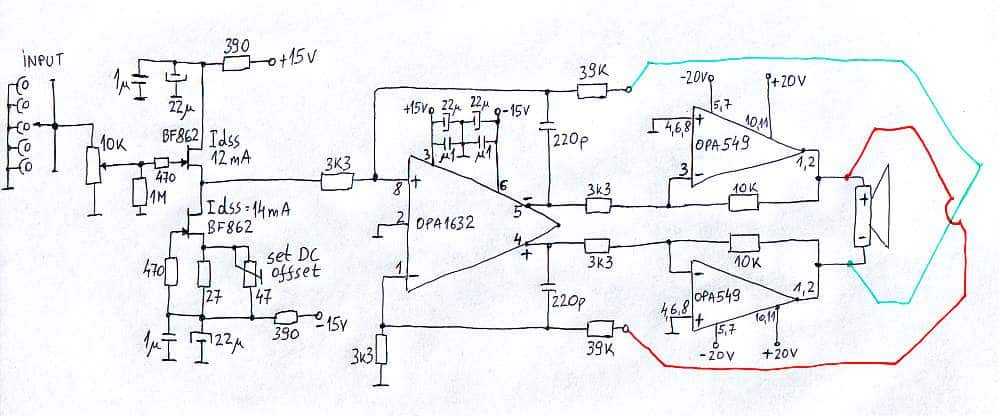 INPUT
10K
1µ
22µ
390
+15V
BF862
Idss
12mA
470
1M
Idss=14mA
BF862
470
27
47
set DC
offset
1µ
22µ
390
-15V
3K3
3K3
+15V
22µ
22µ
-15V
µ1
µ1
3
6
8
+
2
OPA1632
1
-
5
-
4
+
39K
220p
220p
39K
3K3
3K3
-20V
+20V
5,7
10,11
4,6,8
+
OPA549
3
-
1,2
10K
10K
-
OPA549
4,6,8
+
1,2
5,7
10,11
-20V
+20V
+
-